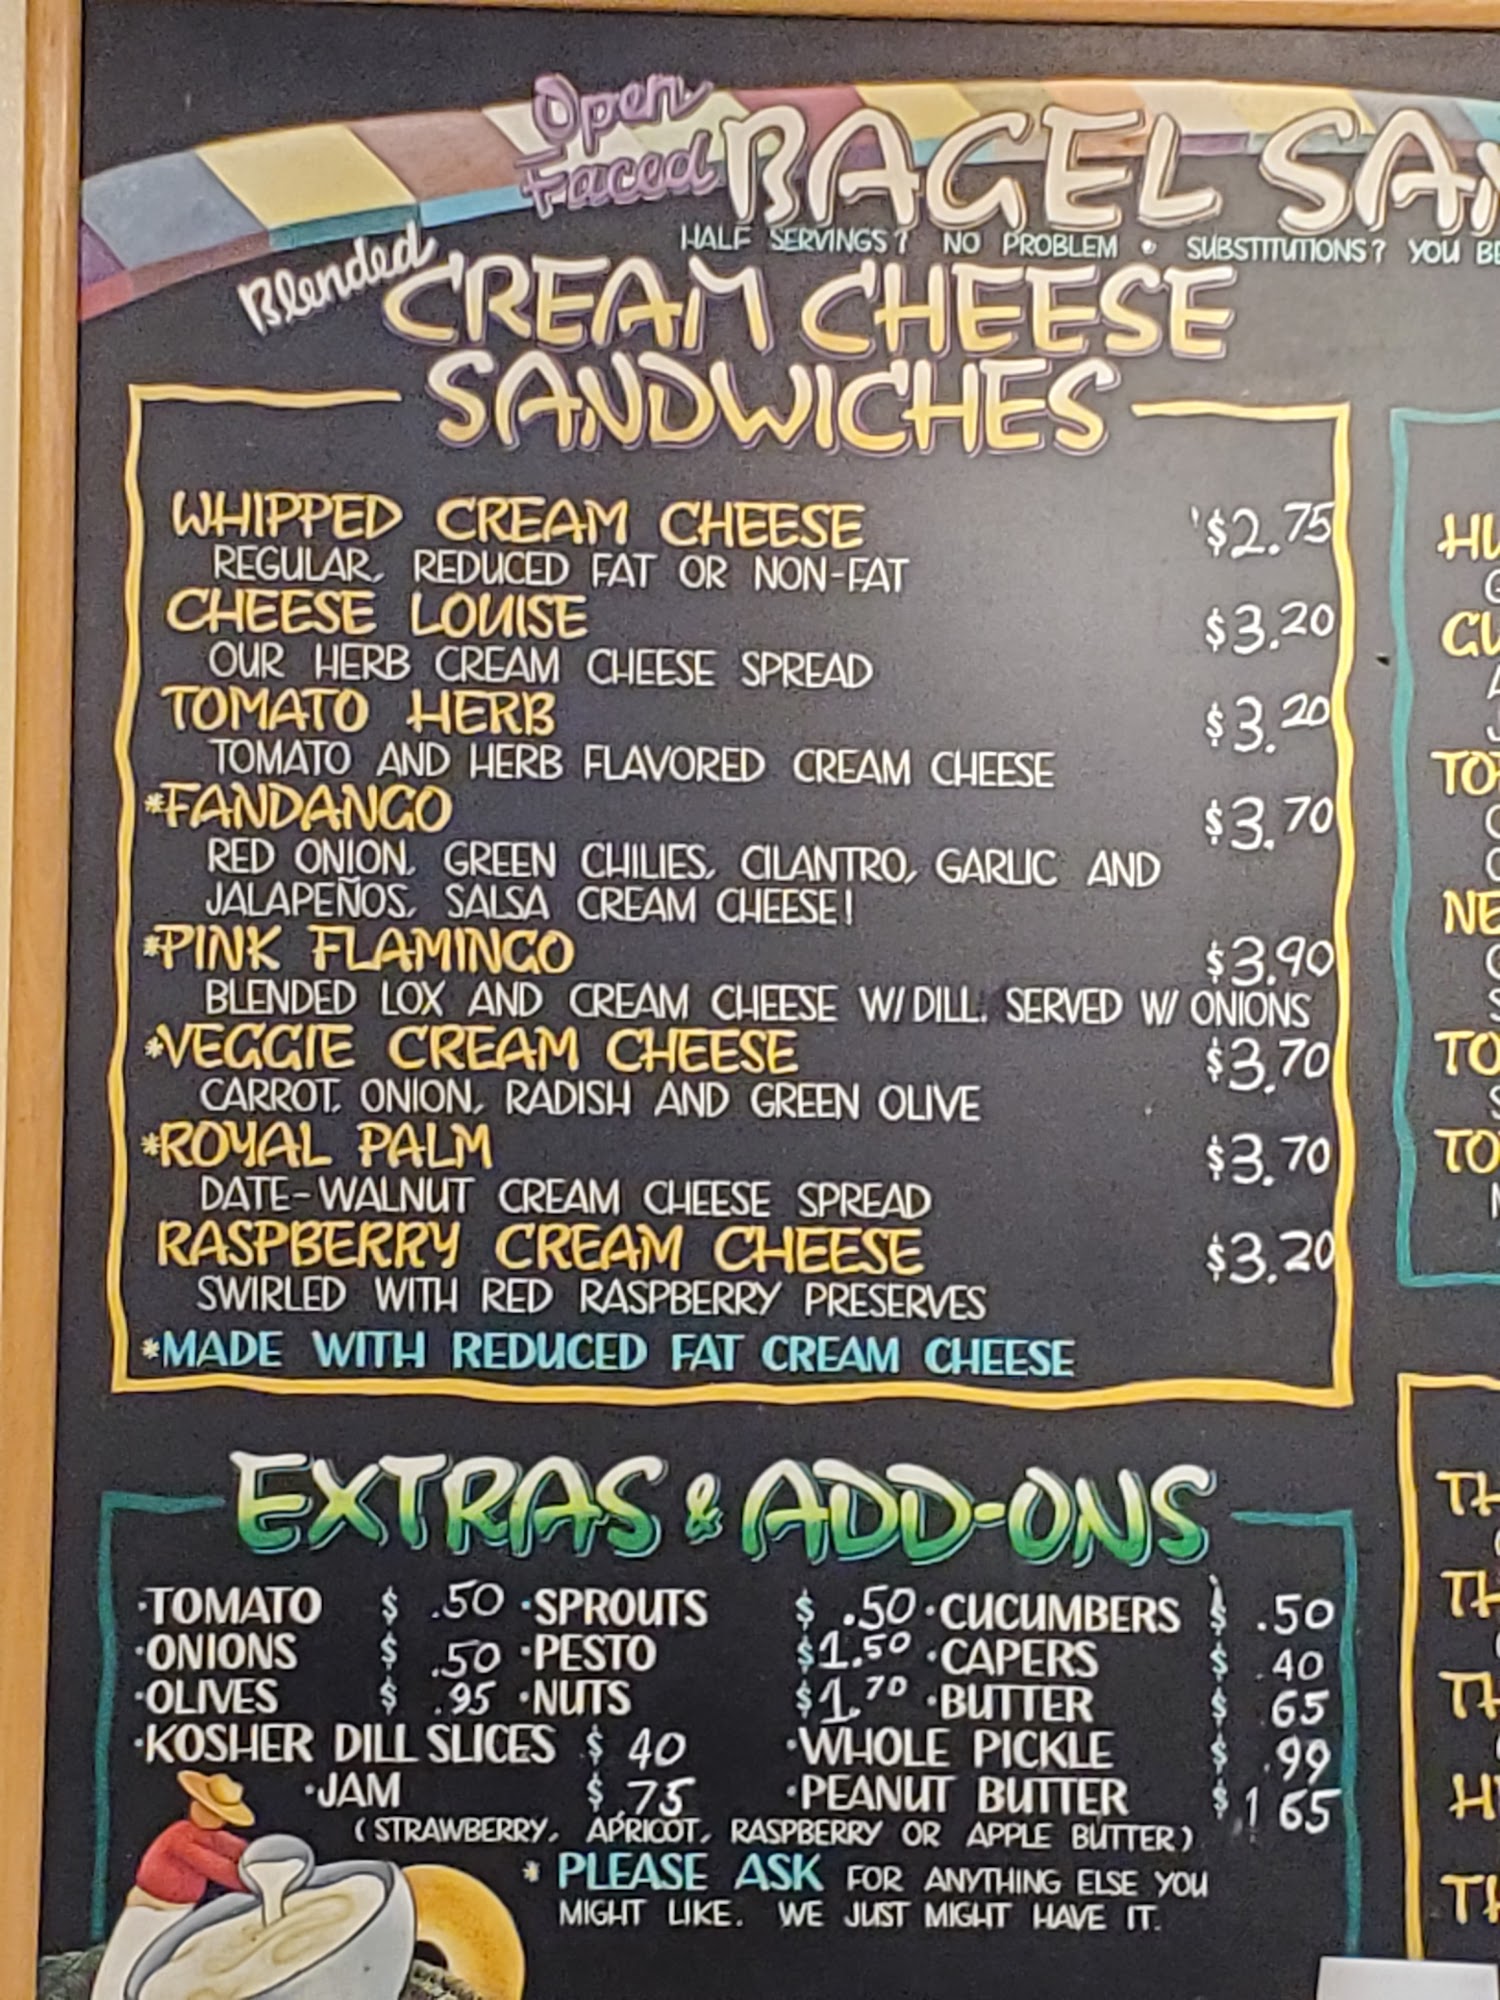 Open Faced BAGEL
HALF SERVINGS? NO PROBLEM • SUBSTITUTIONS? YOU
Blended
CREAM CHEESE
SANDWICHES
WHIPPED CREAM CHEESE $2.75
REGULAR, REDUCED FAT OR NON-FAT
CHEESE LOUISE $3.20
OUR HERB CREAM CHEESE SPREAD
TOMATO HERB $3.20
TOMATO AND HERB FLAVORED CREAM CHEESE
*FANDANGO $3.70
RED ONION, GREEN CHILIES, CILANTRO, GARLIC AND
JALAPEÑOS, SALSA CREAM CHEESE!
*PINK FLAMINGO $3.90
BLENDED LOX AND CREAM CHEESE W/ DILL. SERVED W/ ONIONS
*VEGGIE CREAM CHEESE $3.70
CARROT, ONION, RADISH AND GREEN OLIVE
*ROYAL PALM $3.70
DATE-WALNUT CREAM CHEESE SPREAD
RASPBERRY CREAM CHEESE $3.20
SWIRLED WITH RED RASPBERRY PRESERVES
*MADE WITH REDUCED FAT CREAM CHEESE
EXTRAS & ADD-ONS
·TOMATO $ .50 ·SPROUTS $ .50 ·CUCUMBERS $ .50
·ONIONS $ .50 ·PESTO $1.50 ·CAPERS $ .40
·OLIVES $ .95 ·NUTS $1.70 ·BUTTER $ 65
·KOSHER DILL SLICES $ 40 ·WHOLE PICKLE $ .99
·JAM $ .75 ·PEANUT BUTTER $ 1 65
(STRAWBERRY, APRICOT, RASPBERRY OR APPLE BUTTER)
* PLEASE ASK FOR ANYTHING ELSE YOU
MIGHT LIKE. WE JUST MIGHT HAVE IT.